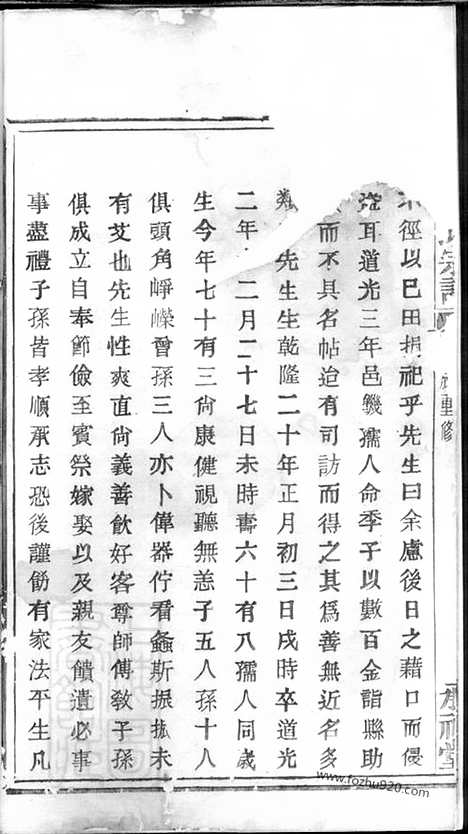 不徑以已田捐祀乎先生曰余慮後日之藉口而侵
強耳道光三年邑饑孺人命季子以數百金詣縣助
而不具名帖迨有司訪而得之其為善無近名多
類 先生生乾隆二十年正月初三日戌時卒道光
二年 二月二十七日未時壽六十有八孺人同歲
生今年七十有三尙康健視聽無恙子五人孫十八
俱頭角崢嶸曾孫三人亦卜偉器佇看螽斯振振未
有艾也先生性爽直尙義善飲好客尊師傅敎子孫
俱成立自奉節儉至賓祭嫁娶以及親友饋遺必事
事盡禮子孫皆孝順承志恐後謹飭有家法平生凡
宗譜
重修
祠堂
www.fozhu920.com